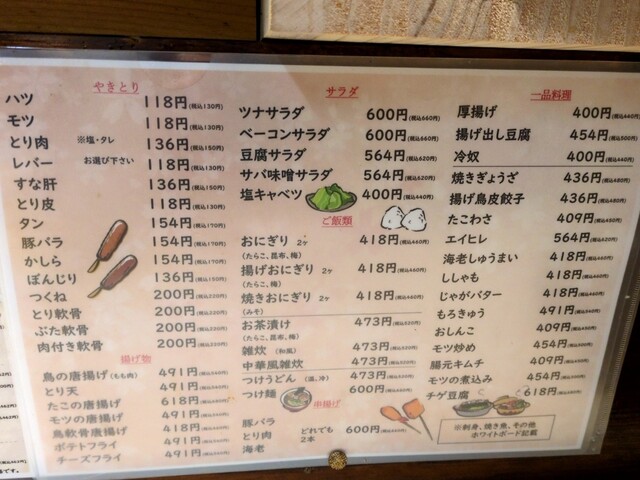 やきとり
ハツ 118円(税込130円)
モツ 118円(税込130円)
とり肉 ※塩・タレ 136円(税込150円)
レバー お選び下さい 118円(税込130円)
すな肝 136円(税込150円)
とり皮 118円(税込130円)
タン 154円(税込170円)
豚バラ 154円(税込170円)
かしら 154円(税込170円)
ぼんじり 136円(税込150円)
つくね 200円(税込220円)
とり軟骨 200円(税込220円)
ぶた軟骨 200円(税込220円)
肉付き軟骨 200円(税込220円)
揚げ物
鳥の唐揚げ(もも肉) 491円(税込540円)
とり天 491円(税込540円)
たこの唐揚げ 618円(税込680円)
モツの唐揚げ 491円(税込540円)
鳥軟骨唐揚げ 418円(税込460円)
ポテトフライ 491円
チーズフライ 491円
サラダ
ツナサラダ 600円(税込660円)
ベーコンサラダ 600円(税込660円)
豆腐サラダ 564円(税込620円)
サバ味噌サラダ 564円(税込620円)
塩キャベツ 400円(税込440円)
ご飯類
おにぎり 2ヶ 418円(税込460円)
(たらこ、昆布、梅)
揚げおにぎり 2ヶ 418円(税込460円)
(たらこ、梅)
焼きおにぎり 2ヶ 418円(税込460円)
(みそ)
お茶漬け 473円(税込520円)
(たらこ、昆布、梅)
雑炊 (和風) 473円(税込520円)
中華風雑炊 473円(税込520円)
つけうどん (温、冷) 473円(税込520円)
つけ麺 600円(税込660円)
串揚げ
豚バラ
とり肉 どれでも 2本 600円(税込660円)
海老
一品料理
厚揚げ 400円(税込440円)
揚げ出し豆腐 454円(税込500円)
冷奴 400円(税込440円)
焼きぎょうざ 436円(税込480円)
揚げ鳥皮餃子 436円(税込480円)
たこわさ 409円(税込450円)
エイヒレ 564円(税込620円)
海老しゅうまい 418円(税込460円)
ししゃも 418円(税込460円)
じゃがバター 418円(税込460円)
もろきゅう 409円(税込450円)
おしんこ 409円(税込450円)
モツ炒め 454円(税込500円)
腸元キムチ 409円(税込450円)
モツの煮込み 454円(税込500円)
チゲ豆腐 618円(税込680円)
※刺身、焼き魚、その他
ホワイトボード記載